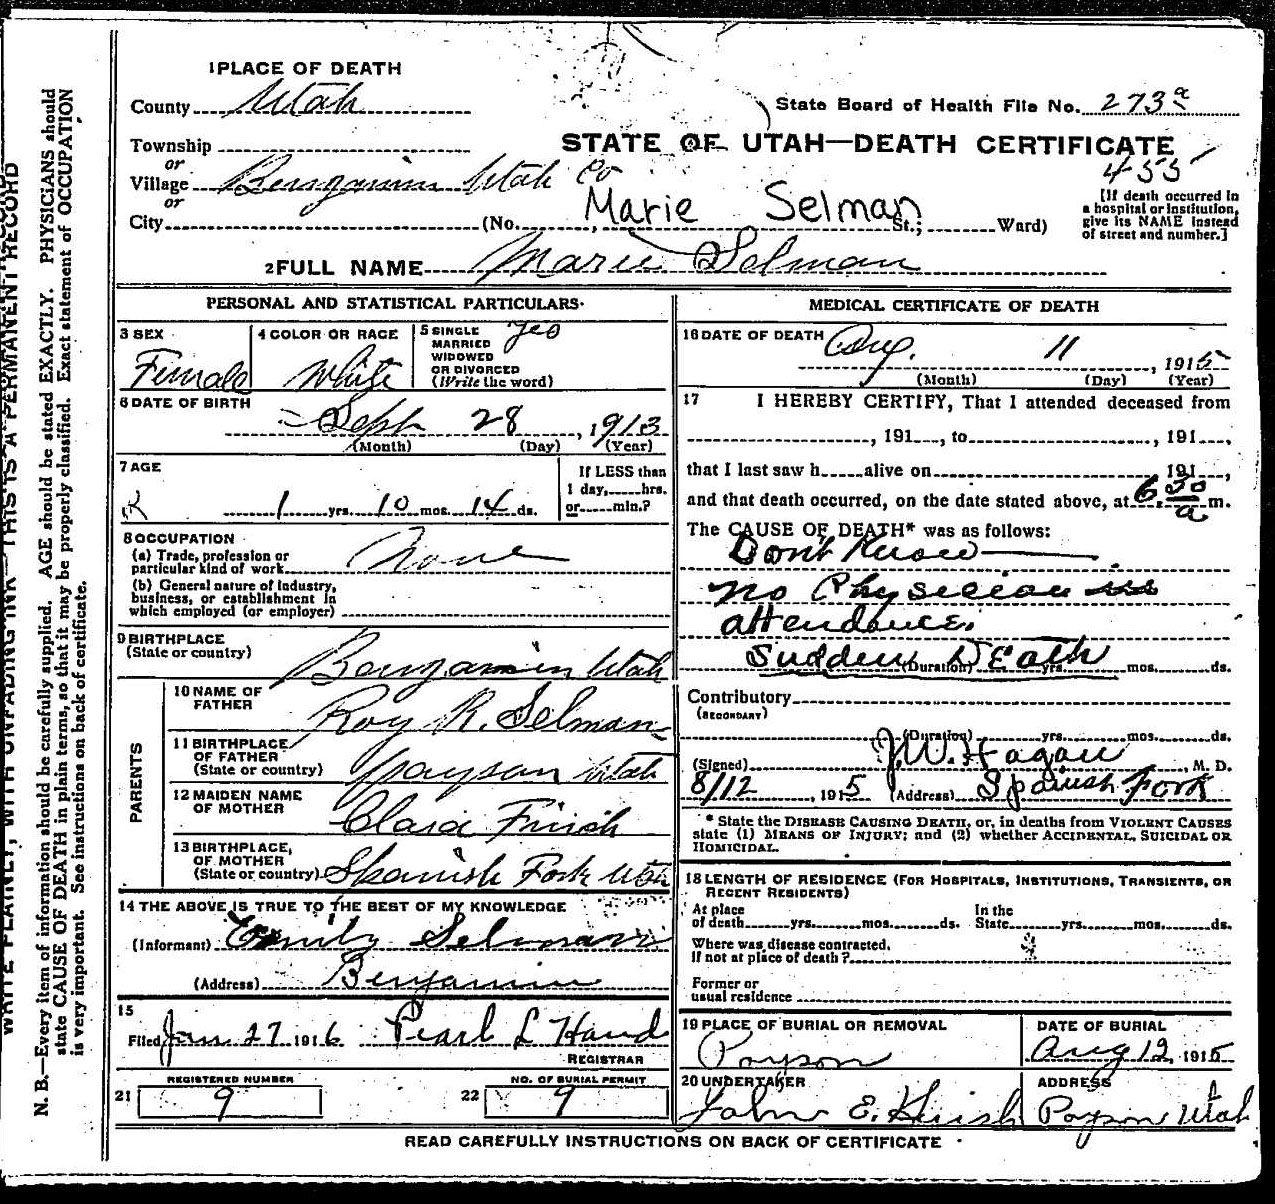 1 PLACE OF DEATH
County Utah
State Board of Health File No. 273a
Township
STATE OF UTAH—DEATH CERTIFICATE
or
455
Village Benjamin Utah Co
or
[If death occurred in
a hospital or institution,
give its NAME instead
of street and number.]
Marie Selman
City (No. , St.; Ward)
2 FULL NAME Marie Selman
PERSONAL AND STATISTICAL PARTICULARS
3 SEX
Female
4 COLOR OR RACE
White
5 SINGLE
MARRIED
WIDOWED
OR DIVORCED
(Write the word)
Yes
6 DATE OF BIRTH
Sept 28, 1913
(Month) (Day) (Year)
7 AGE
1 yrs. 10 mos. 14 ds.
If LESS than
1 day, hrs.
or min.?
8 OCCUPATION
(a) Trade, profession or
particular kind of work None
(b) General nature of industry,
business, or establishment in
which employed (or employer)
9 BIRTHPLACE
(State or country) Benjamin Utah
PARENTS
10 NAME OF
FATHER Roy R. Selman
11 BIRTHPLACE
OF FATHER
(State or country) Payson Utah
12 MAIDEN NAME
OF MOTHER Clara
13 BIRTHPLACE,
OF MOTHER
(State or country) Spanish Fork Utah
14 THE ABOVE IS TRUE TO THE BEST OF MY KNOWLEDGE
(Informant) Emily Selman
(Address) Benjamin
15
Filed Jan 27 1916 Pearl L Hand
REGISTRAR
REGISTERED NUMBER
21 9
NO. OF BURIAL PERMIT
22 9
MEDICAL CERTIFICATE OF DEATH
16 DATE OF DEATH
Aug. 11, 1915
(Month) (Day) (Year)
17 I HEREBY CERTIFY, That I attended deceased from
, 191 , to , 191 ,
that I last saw h alive on 191 ,
and that death occurred, on the date stated above, at 6.30 a m.
The CAUSE OF DEATH* was as follows:
Don't Know
no Physician in
attendance.
Sudden Death
(Duration) yrs. mos. ds.
Contributory
(SECONDARY)
(Duration) yrs. mos. ds.
(Signed) J.W. Hagan, M. D.
8/12, 1915 (Address) Spanish Fork
* State the DISEASE CAUSING DEATH, or, in deaths from VIOLENT CAUSES
state (1) MEANS OF INJURY; and (2) whether ACCIDENTAL, SUICIDAL OR
HOMICIDAL.
18 LENGTH OF RESIDENCE (FOR HOSPITALS, INSTITUTIONS, TRANSIENTS, OR
RECENT RESIDENTS)
At place
of death yrs. mos. ds.
In the
State yrs. mos. ds.
Where was disease contracted,
If not at place of death?
Former or
usual residence
19 PLACE OF BURIAL OR REMOVAL
Payson
DATE OF BURIAL
Aug 12, 1915
20 UNDERTAKER
John E.
ADDRESS
Payson Utah
READ CAREFULLY INSTRUCTIONS ON BACK OF CERTIFICATE
WRITE PLAINLY, WITH UNFADING INK—THIS IS A PERMANENT RECORD
N. B.—Every item of information should be carefully supplied. AGE should be stated EXACTLY. PHYSICIANS should
state CAUSE OF DEATH in plain terms, so that it may be properly classified. Exact statement of OCCUPATION
is very important. See instructions on back of certificate.